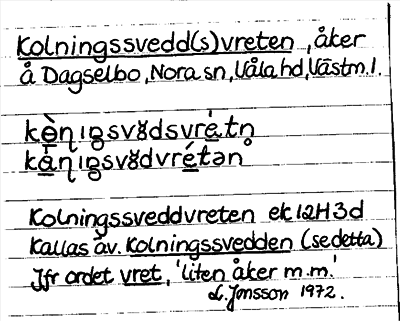 Kolningssvedd(s)vreten, åker
å Dagselbo, Nora sn, Våla hd, Västm. l.
Kolningssveddvreten ek 12H3d
kallas äv. Kolningssvedden (se detta)
Jfr ordet vret, 'liten åker m.m.'
L. Jonsson 1972.